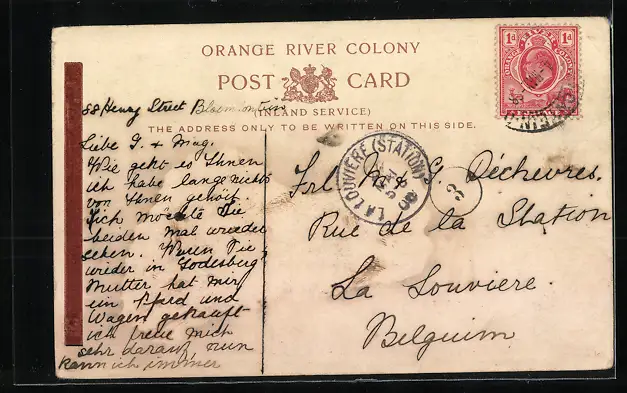 ORANGE RIVER COLONY
POST CARD
(INLAND SERVICE)
THE ADDRESS ONLY TO BE WRITTEN ON THIS SIDE.
1d 1d
ORANGE RIVER COLONY
88 Henry Street Bloemfontein
Liebe G. + Mag.
Wie geht es Ihnen
ich habe lange nichts
von Ihnen gehört.
Ich möchte Sie
beiden mal wieder
sehen. Waren Sie
wieder in Godesberg
Mutter hat mir
ein Pferd und
Wagen gekauft
ich freue mich
sehr darauf, nun
kann ich immer
LA LOUVIERE (STATION)
3
Frl. M. & G. Déchevres.
Rue de la Station
La Louviere.
Belguim